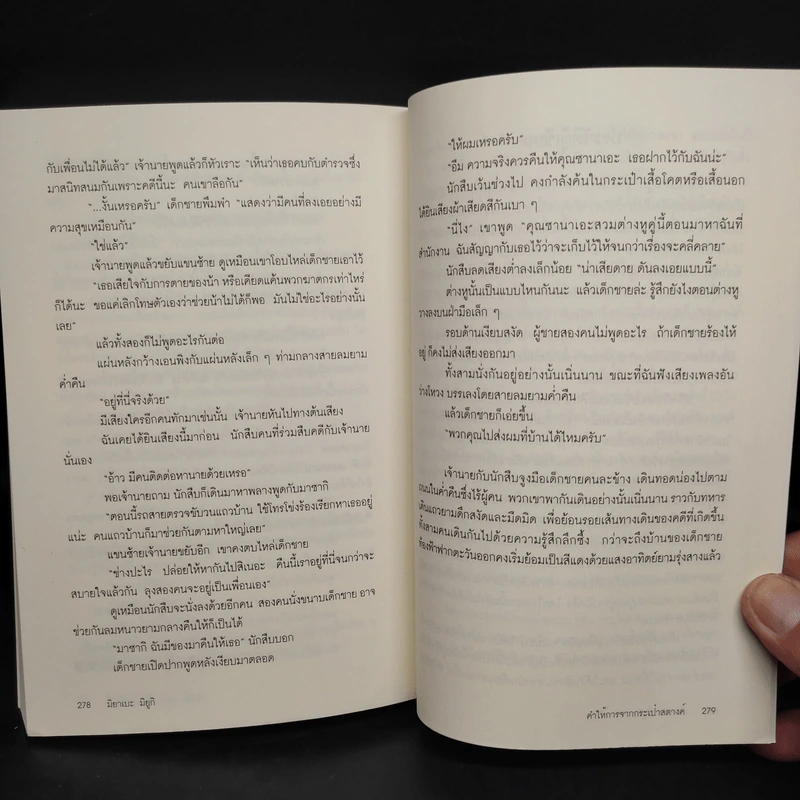 กับเพื่อนไม่ได้แล้ว” เจ้านายพูดแล้วก็หัวเราะ “เห็นว่าเธอคบกับตำรวจซึ่ง
มาสนิทสนมกันเพราะคดีนี้นะ คนเขาลือกัน”
“...งั้นเหรอครับ” เด็กชายพึมพำ “แสดงว่ามีคนที่ลงเอยอย่างมี
ความสุขเหมือนกัน”
“ใช่แล้ว”
เจ้านายพูดแล้วขยับแขนซ้าย ดูเหมือนเขาโอบไหล่เด็กชายเอาไว้
“เธอเสียใจกับการตายของน้า หรือเคียดแค้นพวกฆาตกรเท่าไหร่
ก็ได้นะ ขอแค่เลิกโทษตัวเองว่าช่วยน้าไม่ได้ก็พอ มันไม่ใช่อะไรอย่างนั้น
เลย”
แล้วทั้งสองก็ไม่พูดอะไรกันต่อ
แผ่นหลังกว้างเอนพิงกับแผ่นหลังเล็ก ๆ ท่ามกลางสายลมยาม
ค่ำคืน
“อยู่ที่นี่จริงด้วย”
มีเสียงใครอีกคนทักมาเช่นนั้น เจ้านายหันไปทางต้นเสียง
ฉันเคยได้ยินเสียงนี้มาก่อน นักสืบคนที่ร่วมสืบคดีกับเจ้านาย
นั่นเอง
“อ้าว มีคนติดต่อหานายด้วยเหรอ”
พอเจ้านายถาม นักสืบก็เดินมาหาพลางพูดกับมาซากิ
“ตอนนี้รถสายตรวจขับวนแถวบ้าน ใช้โทรโข่งร้องเรียกหาเธออยู่
แน่ะ คนแถวบ้านก็มาช่วยกันตามหาใหญ่เลย”
แขนซ้ายเจ้านายขยับอีก เขาคงตบไหล่เด็กชาย
“ช่างปะไร ปล่อยให้หากันไปสิเนอะ คืนนี้เราอยู่ที่นี่จนกว่าจะ
สบายใจแล้วกัน ลุงสองคนจะอยู่เป็นเพื่อนเอง”
ดูเหมือนนักสืบจะนั่งลงด้วยอีกคน สองคนนั่งขนาบเด็กชาย อาจ
ช่วยกันลมหนาวยามกลางคืนให้ก็เป็นได้
“มาซากิ ฉันมีของมาคืนให้เธอ” นักสืบบอก
เด็กชายเปิดปากพูดหลังเงียบมาตลอด
278 มิยาเบะ มิยูกิ
“ให้ผมเหรอครับ”
“อืม ความจริงควรคืนให้คุณซานาเอะ เธอฝากไว้กับฉันน่ะ”
นักสืบเว้นช่วงไป คงกำลังค้นในกระเป๋าเสื้อโคตหรือเสื้อนอก
ได้ยินเสียงผ้าเสียดสีกันเบา ๆ
“นี่ไง” เขาพูด “คุณซานาเอะสวมต่างหูคู่นี้ตอนมาหาฉันที่
สำนักงาน ฉันสัญญากับเธอไว้ว่าจะเก็บไว้ให้จนกว่าเรื่องจะคลี่คลาย”
นักสืบลดเสียงต่ำลงเล็กน้อย “น่าเสียดาย ดันลงเอยแบบนี้”
ต่างหูนั้นเป็นแบบไหนกันนะ แล้วเด็กชายล่ะ รู้สึกยังไงตอนต่างหู
วางลงบนฝ่ามือเล็ก ๆ
รอบด้านเงียบสงัด ผู้ชายสองคนไม่พูดอะไร ถ้าเด็กชายร้องไห้
อยู่ ก็คงไม่ส่งเสียงออกมา
ทั้งสามนั่งกันอยู่อย่างนั้นเนิ่นนาน ขณะที่ฉันฟังเสียงเพลงอัน
ว่างโหวง บรรเลงโดยสายลมยามค่ำคืน
แล้วเด็กชายก็เอ่ยขึ้น
“พวกคุณไปส่งผมที่บ้านได้ไหมครับ”
เจ้านายกับนักสืบจูงมือเด็กชายคนละข้าง เดินทอดน่องไปตาม
ถนนในค่ำคืนซึ่งไร้ผู้คน พวกเขาพากันเดินอย่างนั้นเนิ่นนาน ราวกับทหาร
เดินแถวยามดึกสงัดและมืดมิด เพื่อย้อนรอยเส้นทางเดินของคดีที่เกิดขึ้น
ทั้งสามคนเดินกันไปด้วยความรู้สึกลึกซึ้ง กว่าจะถึงบ้านของเด็กชาย
ท้องฟ้าฟากตะวันออกคงเริ่มย้อมเป็นสีแดงด้วยแสงอาทิตย์ยามรุ่งสางแล้ว
คำให้การจากกระเป๋าสตางค์ 279